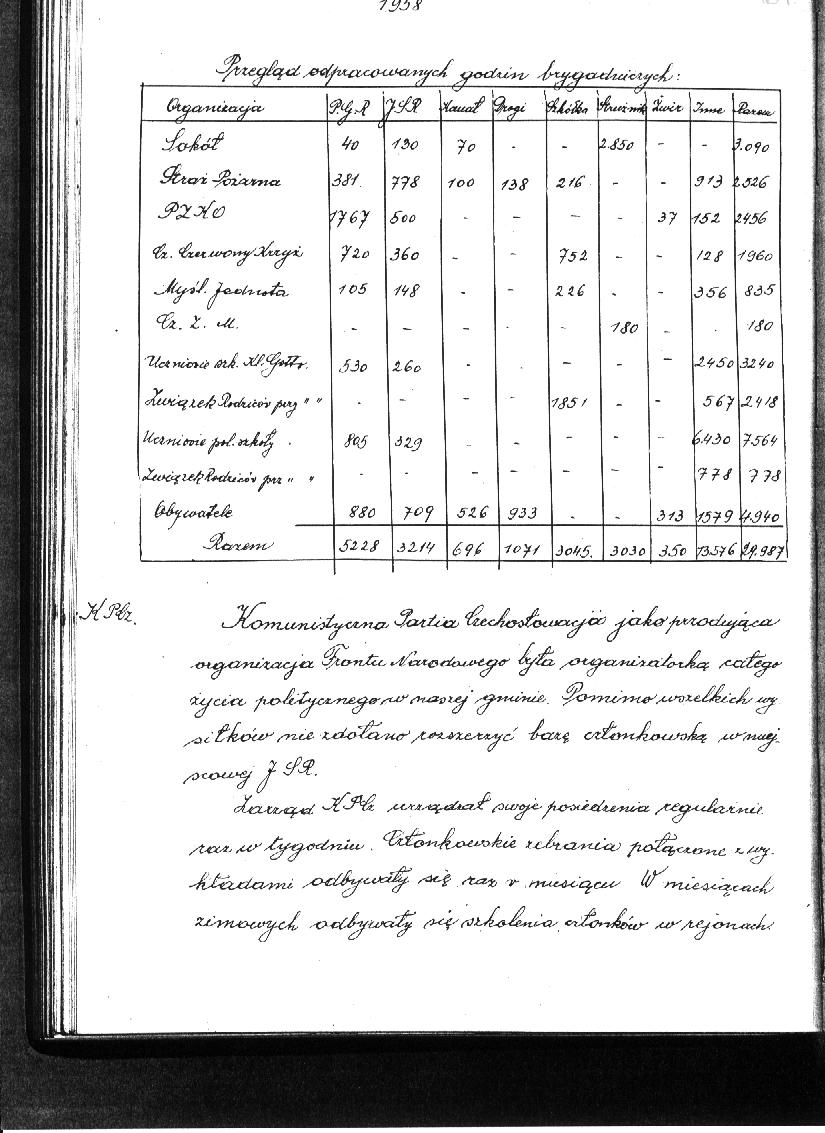 1958
Przegląd odpracowanych godzin brygadniczych:
Organizacja P.G.R JSR Kanał Drogi Szkółka Żwir Inne Razem
Sokół 40 130 70 - - 2.850 - - 3.090
Straż Pożarna 381 778 100 138 216 - - 913 2526
PZKO 1767 500 - - - - 37 152 2456
Cz. Czerwony Krzyż 720 360 - - 752 - - 128 1960
Myśl. Jednota 105 148 - - 226 - - 356 835
Cz. Z. M. - - - - - 180 - . 180
Uczniowie szk. Kl. Gottw. 530 260 - - - - - 2450 3240
Związek Rodziców przy " " - - - - 1851 - - 567 2418
Uczniowie pol. szkoły . 805 329 - - - - - 6430 7564
Związek Rodziców prz " " - - - - - - - 778 778
Obywatele 880 709 526 933 - - 313 1579 4.940
Razem 5228 3214 696 1071 3045. 3030 350 13.576 29.987
K P Cz.
Komunistyczna Partia Czechosłowacji jako przodująca
organizacja Frontu Narodowego była organizatorką całego
życia politycznego w naszej gminie. Pomimo wszelkich wy-
siłków nie zdołano rozszerzyć bazę członkowską w miej-
scowej J S R.
Zarząd K P Cz urządzał swoje posiedzenia regularnie
raz w tygodniu. Członkowskie zebrania połączone z wy-
kładami odbywały się raz v miesiącu W miesiącach
zimowych odbywały się szkolenia członków w rejonach.